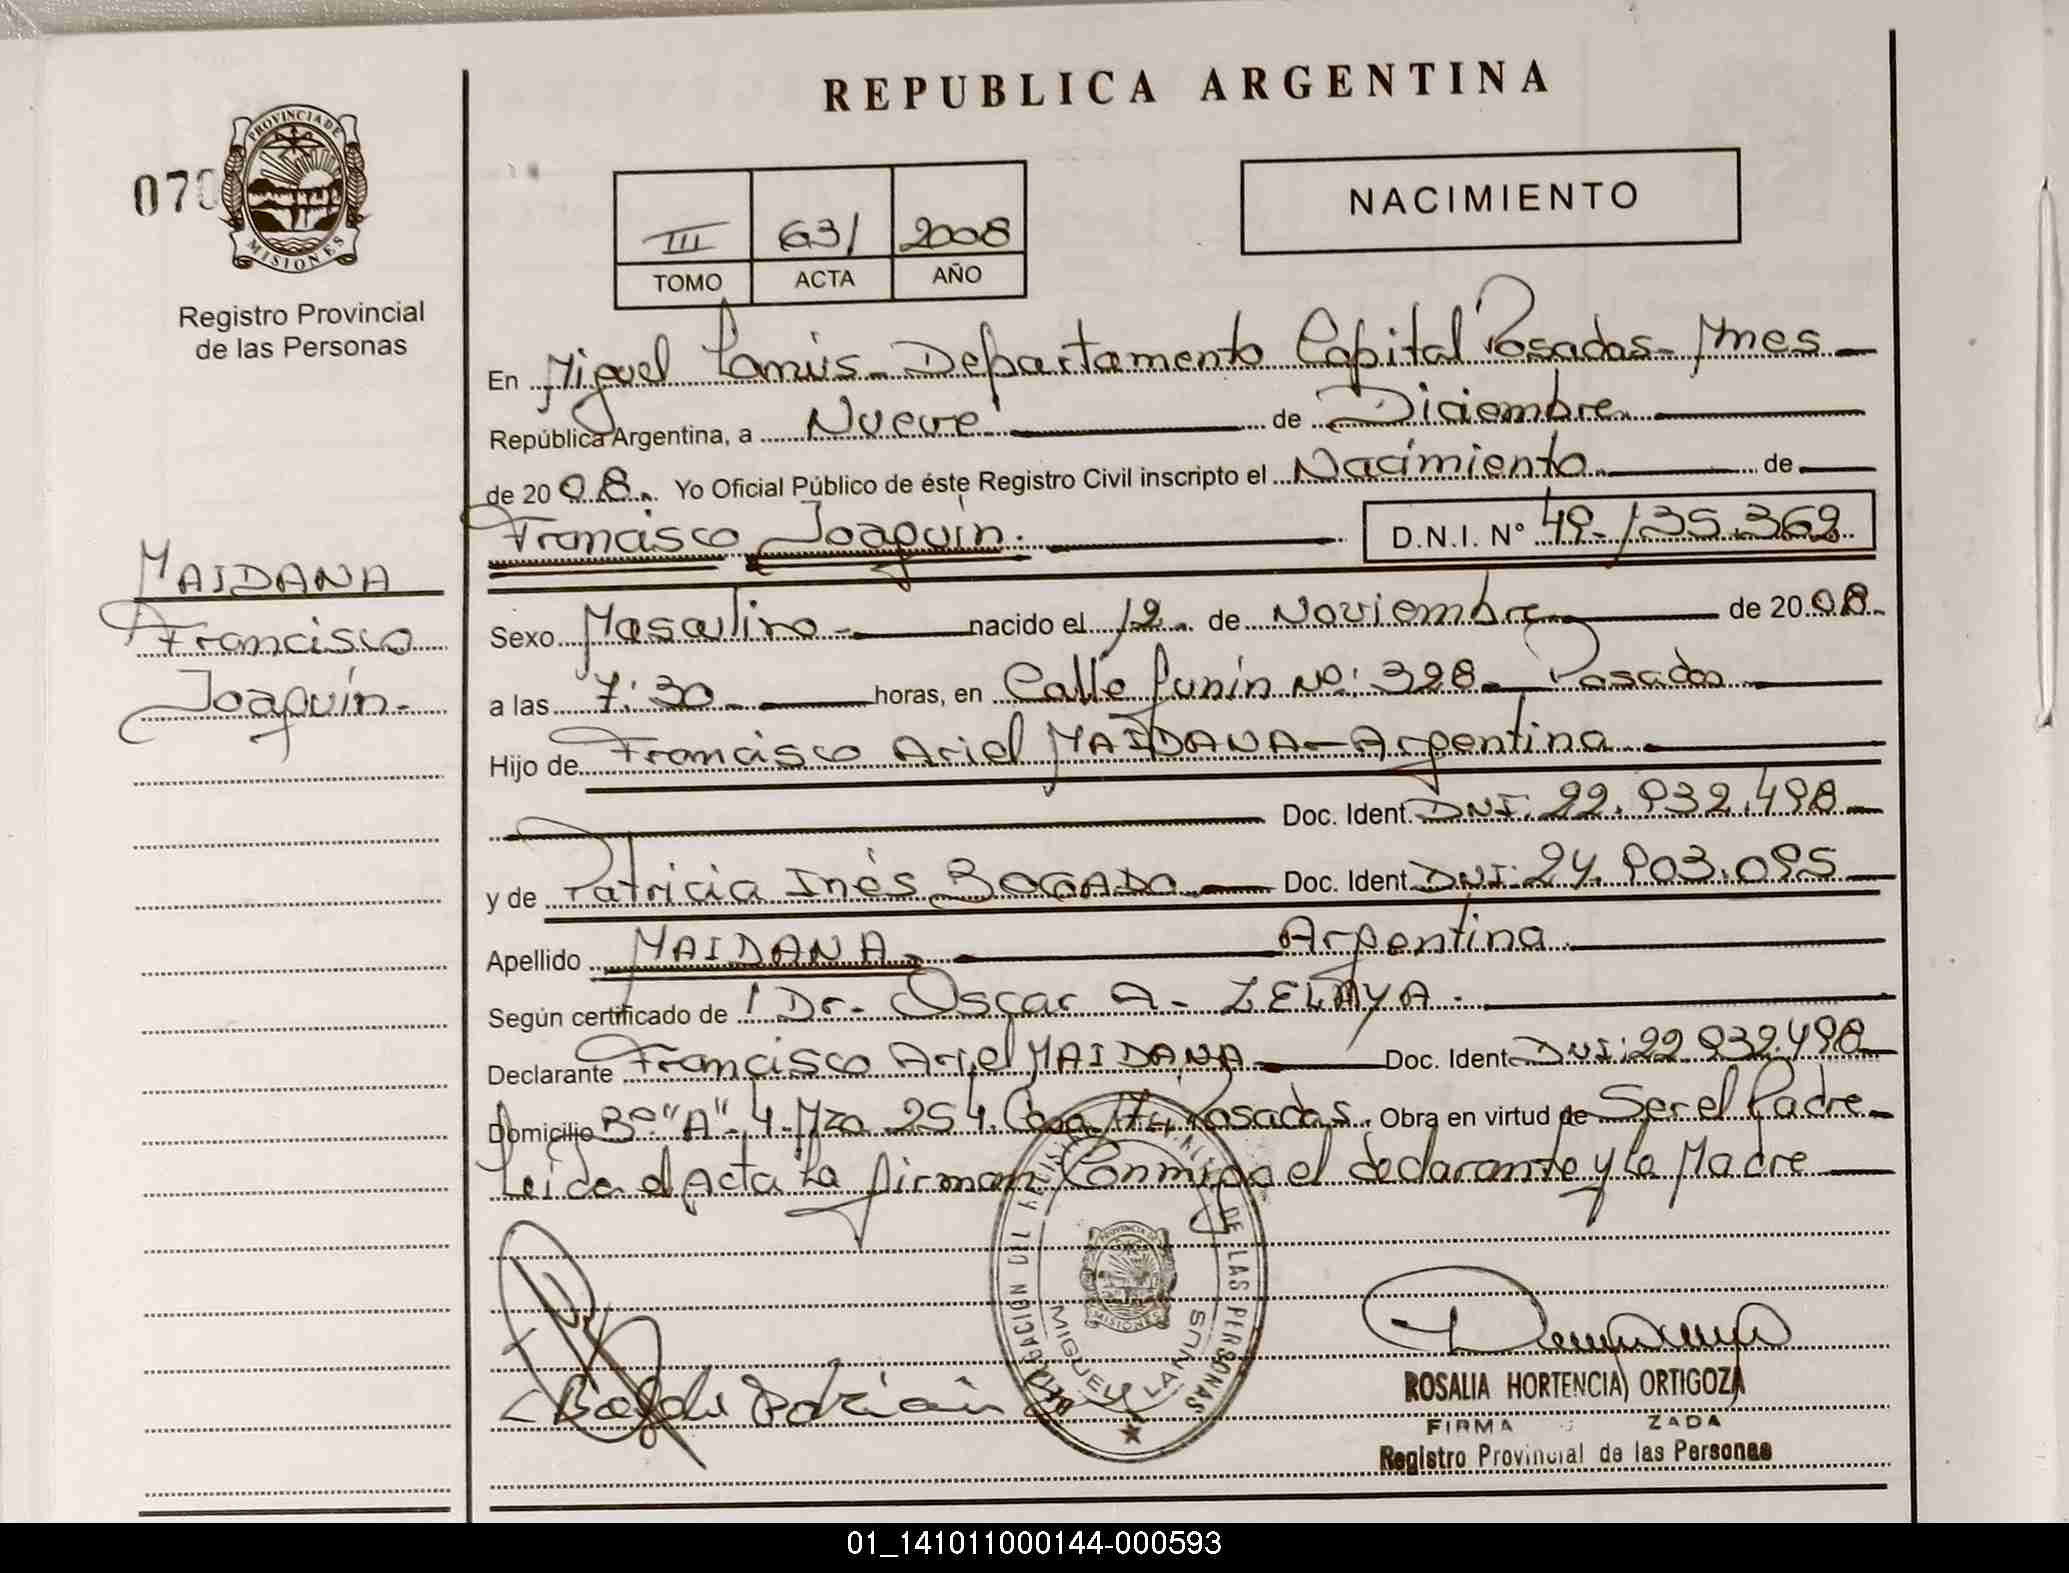 REPUBLICA ARGENTINA
PROVINCIA DE
MISIONES
Registro Provincial
de las Personas
III 631 2008
TOMO ACTA AÑO
NACIMIENTO
MAIDANA
Francisco
Joaquín.-
En Miguel Lanús - Departamento Capital Posadas - Mnes
República Argentina, a Nueve de Diciembre
de 2008. Yo Oficial Público de éste Registro Civil inscripto el Nacimiento de
Francisco Joaquín. D.N.I. N° 49.135.362
Sexo Masculino - nacido el 12 de Noviembre de 2008.
a las 7:30 horas, en Calle Junín Nº: 328 - Posadas
Hijo de Francisco Ariel MAIDANA - Argentina
Doc. Ident. DNI: 22.932.498
y de Patricia Inés BOGADO Doc. Ident. DNI: 24.903.095
Apellido MAIDANA - Argentina
Según certificado de Dr. Oscar A. ZELAYA.
Declarante Francisco Ariel MAIDANA Doc. Ident. DNI: 22.932.498
Domicilio Bº "A"-4- Mza 254. Casa 174 Posadas. Obra en virtud de Ser el Padre
Leída el Acta la firman Conmigo el declarante y la Madre
DELEGACION DEL DE LAS PERSONAS
PROVINCIA DE
MISIONES
MIGUEL LANUS
ROSALIA HORTENCIA ORTIGOZA
FIRMA ZADA
Registro Provincial de las Personas
01_141011000144-000593